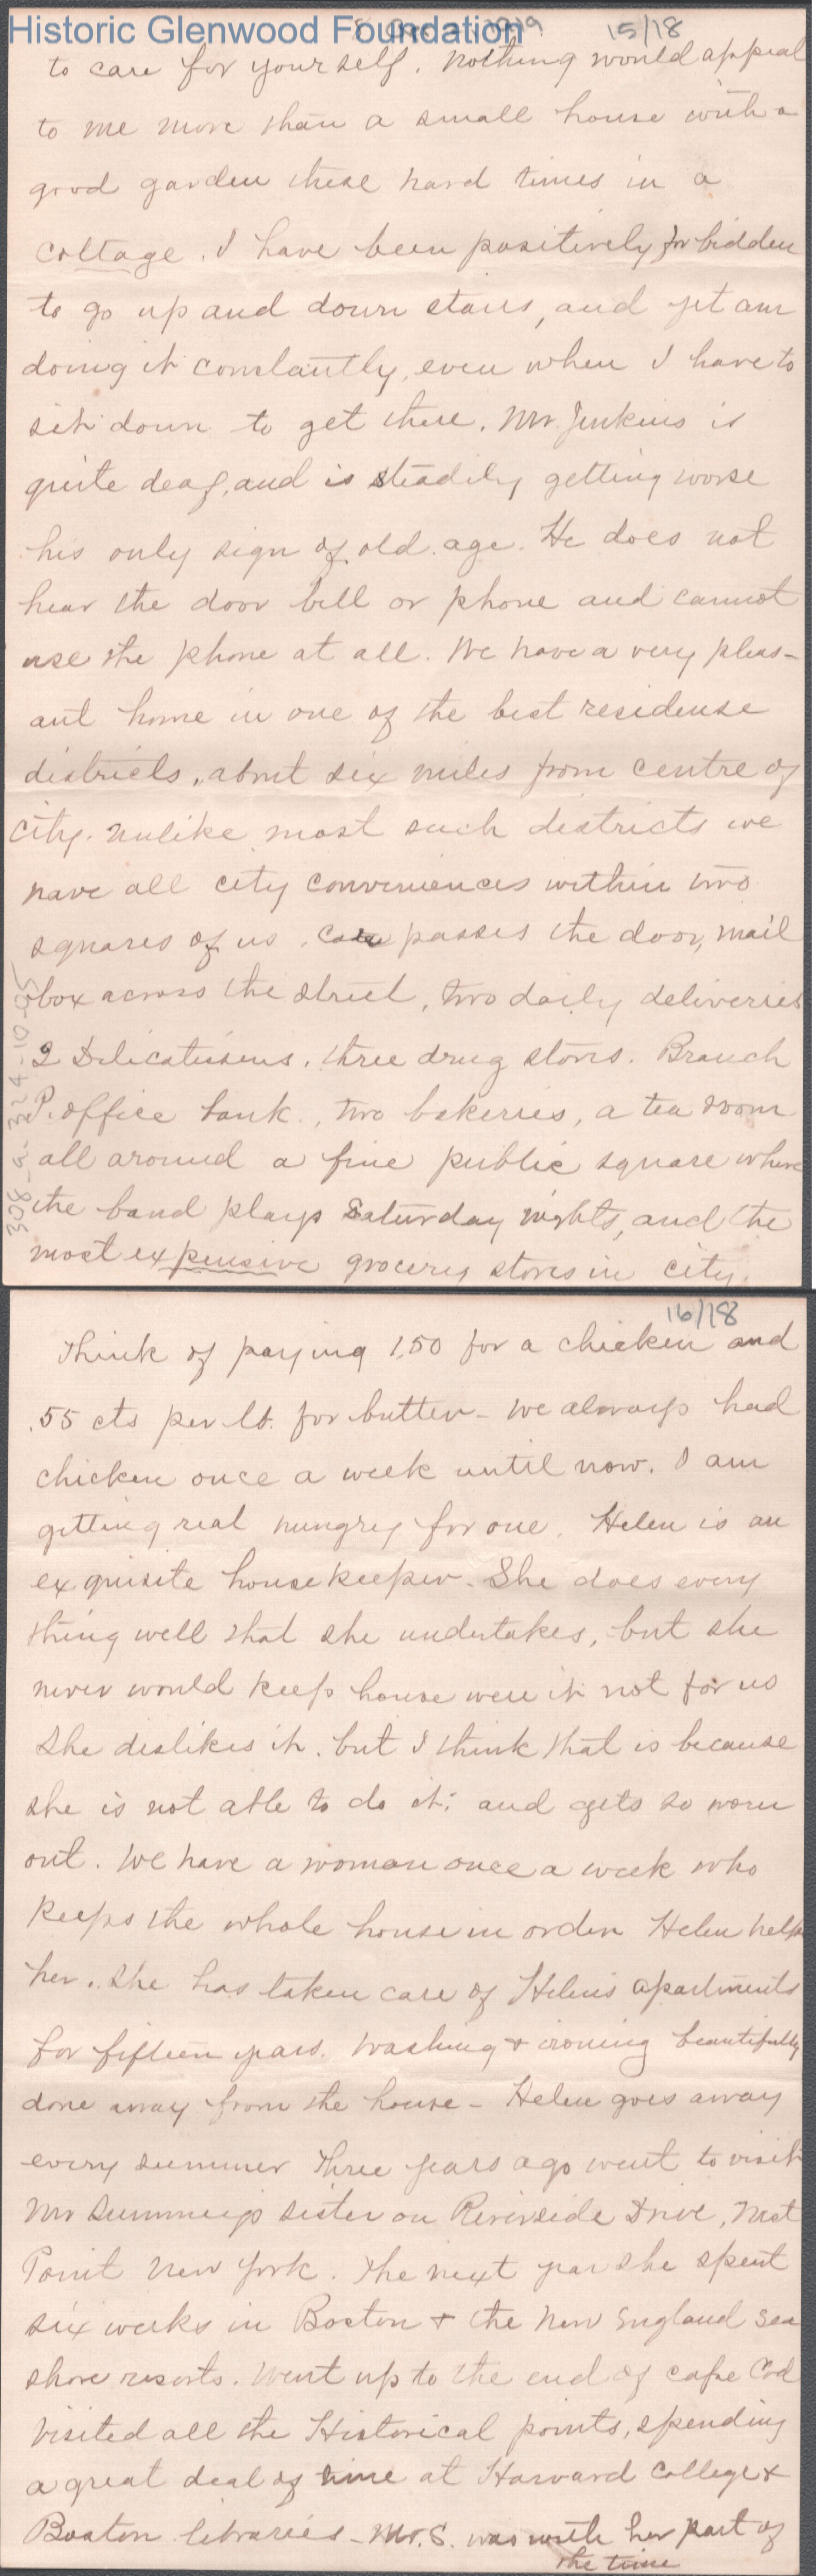 Historic Glenwood Foundation
15/18
to care for yourself. Nothing would appeal
to me more than a small house with a
good garden these hard times in a
cottage. I have been positively forbidden
to go up and down stairs, and yet am
doing it constantly, even when I have to
sit down to get there. Mr. Jenkins is
quite deaf, and is steadily getting worse
his only sign of old age. He does not
hear the door bell or phone and cannot
use the phone at all. We have a very pleas-
ant home in one of the best residense
districts, about six miles from centre of
city. Unlike most such districts we
have all city conveniences within two
squares of us. Car passes the door, mail
box across the street, two daily deliveries
2 Delicatessens, three drug stores. Branch
P. office bank, two bakeries, a tea room
all around a fine public square where
the band plays Saturday nights, and the
most expensive grocery stores in city.
16/18
Think of paying 1.50 for a chicken and
.55 cts per lb. for butter - we always had
chicken once a week until now. I am
getting real hungry for one. Helen is an
exquisite housekeeper. She does every
thing well that she undertakes, but she
never would keep house were it not for us
She dislikes it, but I think that is because
she is not able to do it; and gets so worn
out. We have a woman once a week who
keeps the whole house in order Helen helps
her. She has taken care of Helen's apartments
for fifteen years. Washing & ironing beautifully
done away from the house - Helen goes away
every summer Three years ago went to visit
Mr sister on Riverside Drive, West
Point New York. The next year she spent
six weeks in Boston & the New England sea
shore resorts. Went up to the end of cape Cod
visited all the Historical points, spending
a great deal of time at Harvard College &
Boston libraries - Mr. S. was with her part of
the time